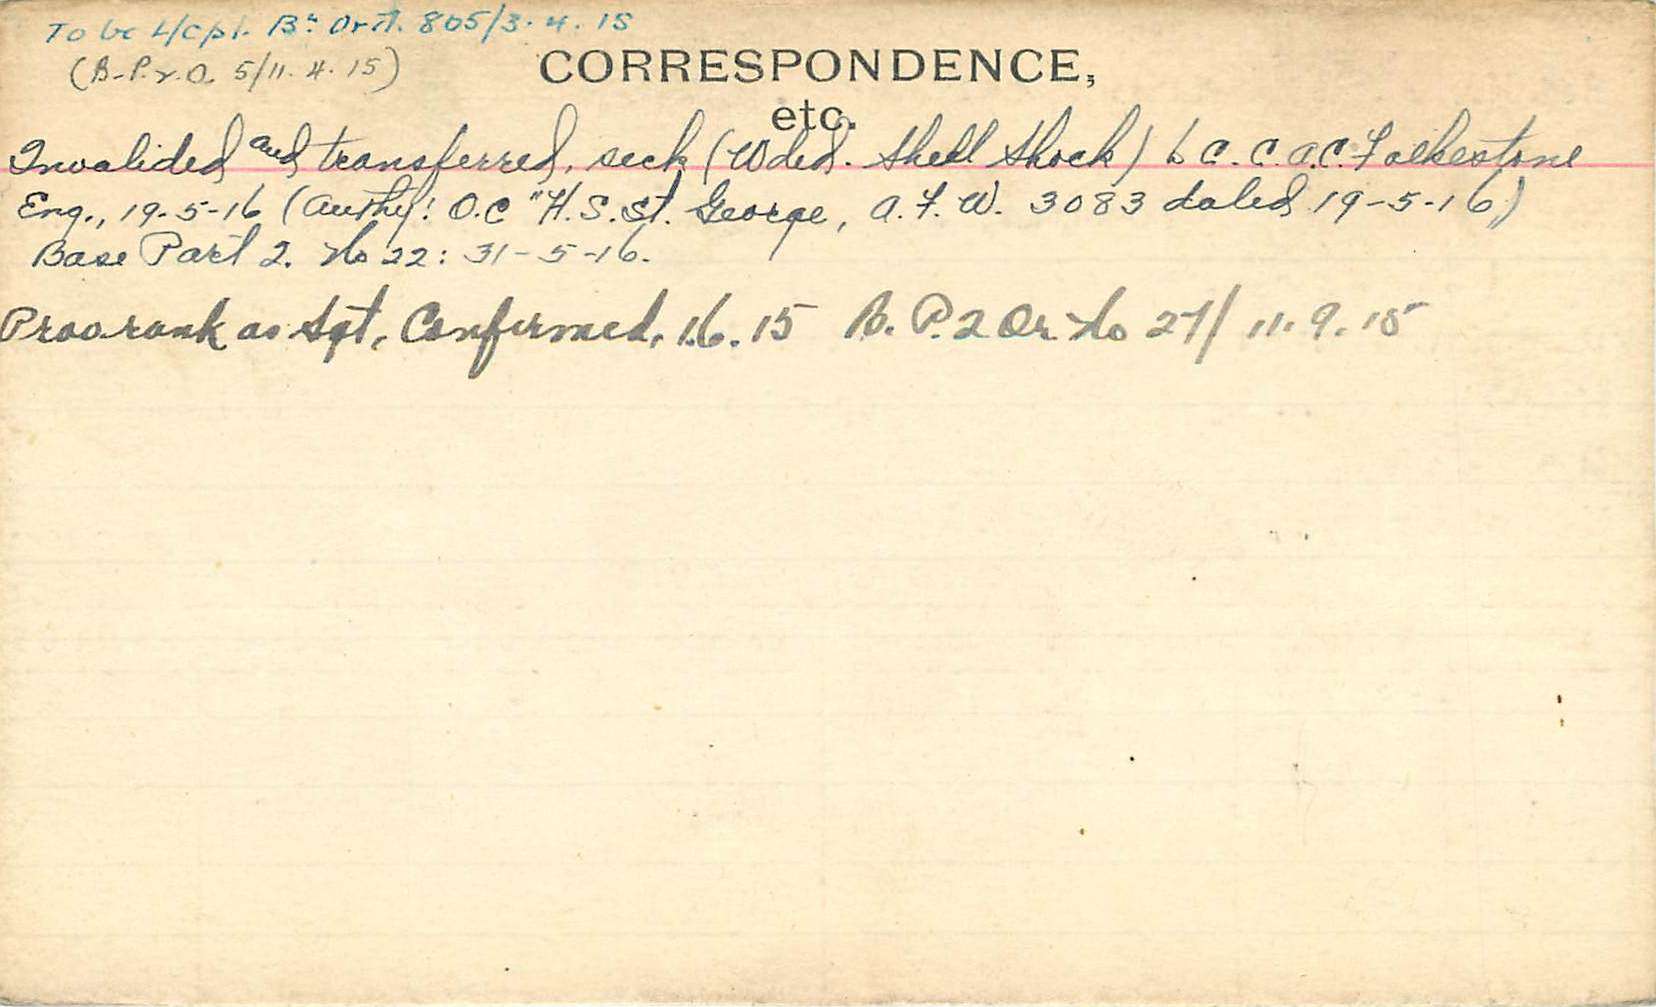 To be L/Cpl. Bn Ord. 805/3.4.15
(B.P.2.O. 5/11.4.15)
CORRESPONDENCE,
etc.
Invalided and transferred, sick (Wded. Shell Shock) to C.C.A.C. Folkestone
Eng., 19-5-16 (Authy: O.C "H.S. St. George, A.F.W. 3083 dated 19-5-16)
Base Part 2. No 22: 31-5-16.
Prov rank as Sgt, Confirmed, 1.6.15 B.P.2 Or No 27/11.9.15